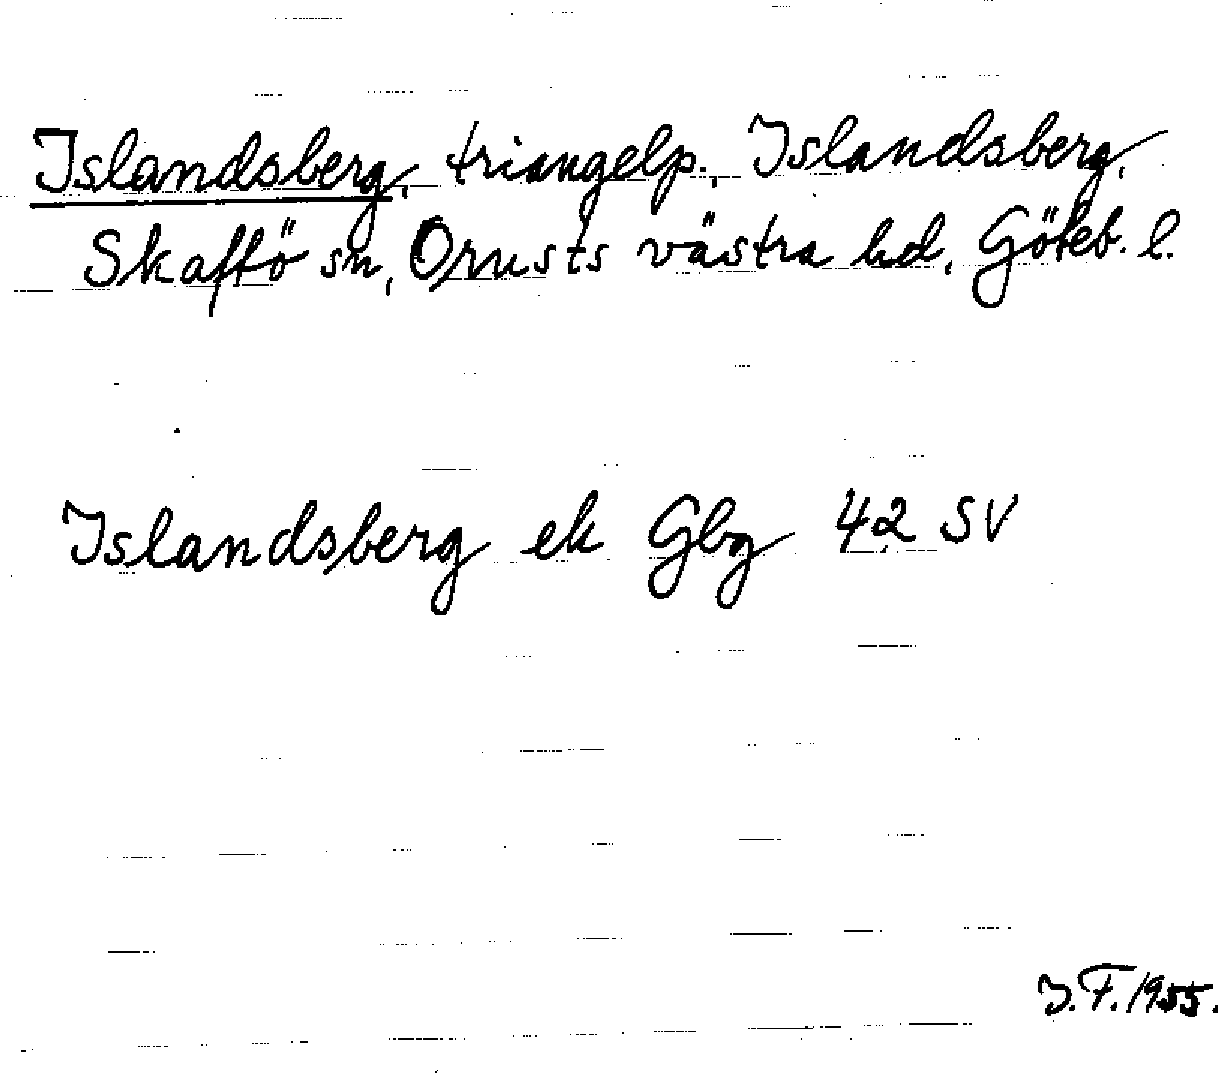 Islandsberg, triangelp., Islandsberg,
Skaftö sn, Orusts västra hd, Göteb. l.
Islandsberg ek Gbg 42 SV
J.F. 1955.